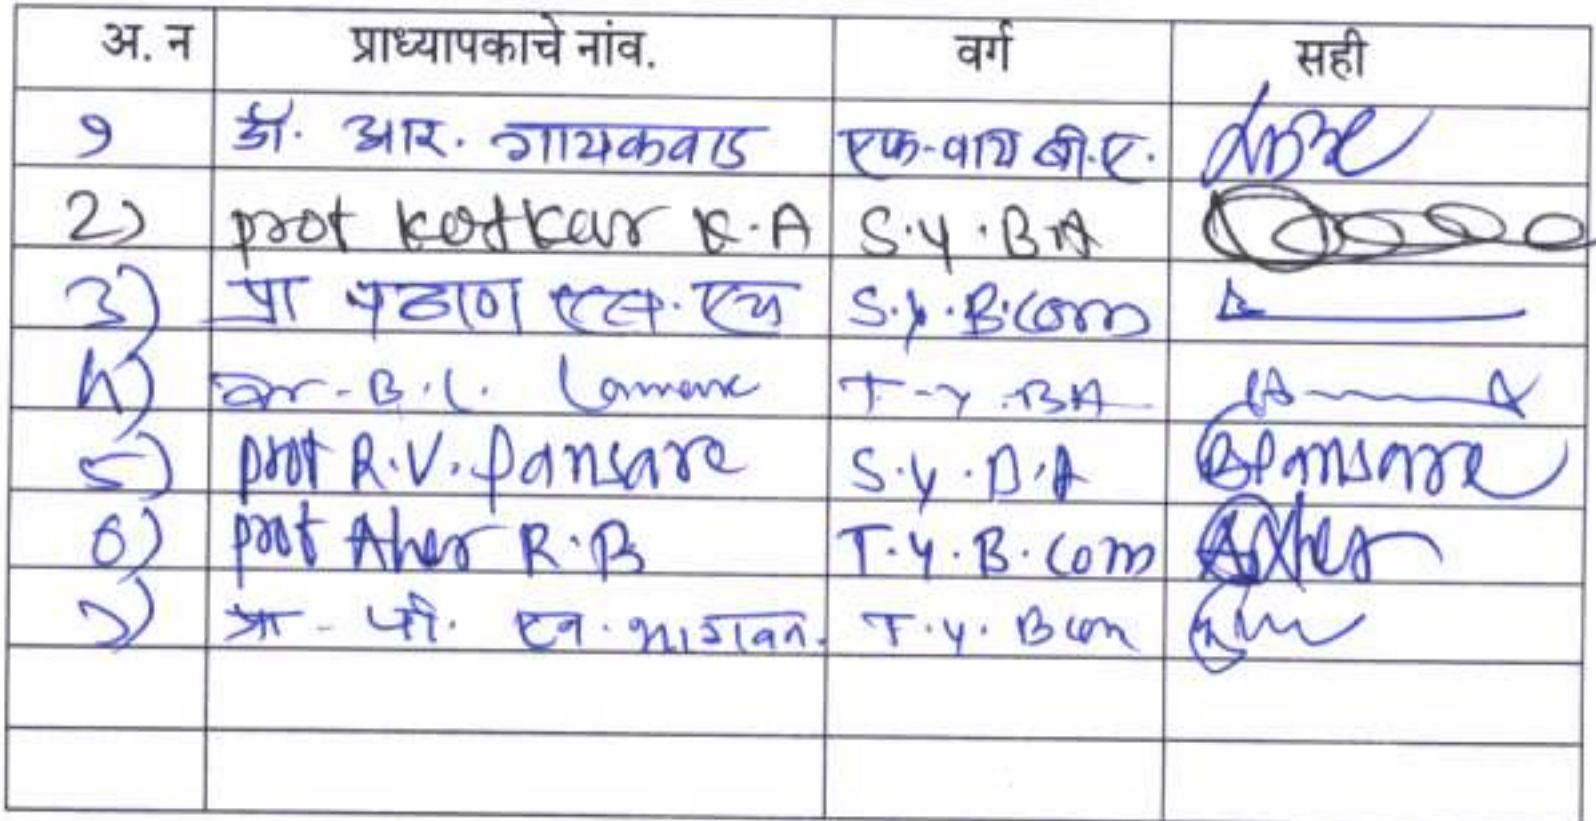 अ. न प्राध्यापकाचे नांव. वर्ग सही
१ डॉ. आर. गायकवाड एफ-वाय बी.ए.
2) prof Kotkar K.A S.Y.BA
3) प्रा पठाण एस. एम S.Y.B.com
4) Dr - B.L. T-Y.BA
5) prof R.V. Pansare S.Y.B.A Pansare
6) prof Aher R.B T.Y.B.com Aher
7) प्रा - पी. एन. T.Y.Bcom